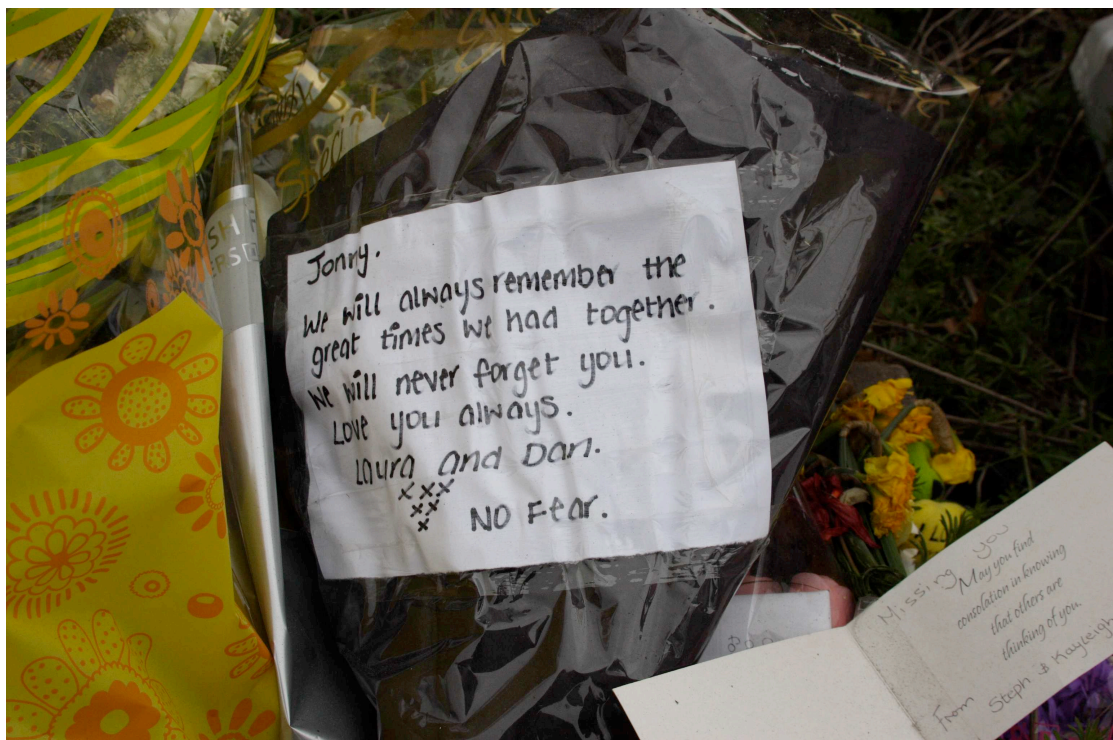 Jonny.
We will always remember the
great times we had together.
We will never forget you.
Love you always.
Laura and Dan.
x x x
x x
x
NO Fear.
Missing you
May you find
consolation in knowing
that others are
thinking of you.
From Steph & Kayleigh